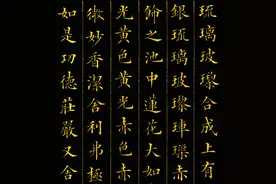 琉璃玻瓈合成上有
銀琉璃玻瓈硨磲赤
飾之池中蓮花大如
光黄色黄光赤色赤
微妙香潔舍利弗極
如是功德莊嚴又舍